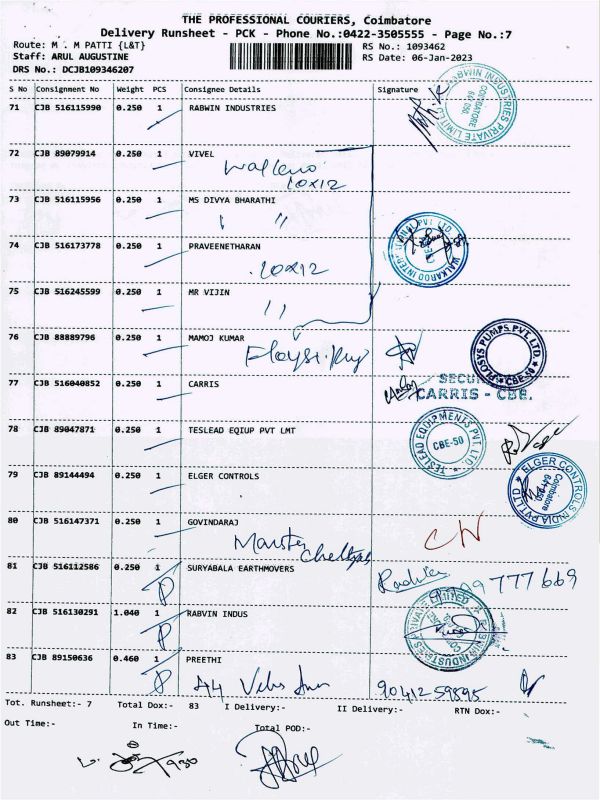 THE PROFESSIONAL COURIERS, Coimbatore
Delivery Runsheet - PCK - Phone No.:0422-3505555 - Page No.:7
Route: M . M PATTI {L&T} RS No.: 1093462
Staff: ARUL AUGUSTINE RS Date: 06-Jan-2023
DRS No.: DCJB109346207
S No Consignment No Weight PCS Consignee Details Signature
71 CJB 516115990 0.250 1 RABWIN INDUSTRIES
RABWIN INDUSTRIES PRIVATE LIMITED COIMBATORE
72 CJB 89079914 0.250 1 VIVEL
10x12
73 CJB 516115956 0.250 1 MS DIVYA BHARATHI
" "
74 CJB 516173778 0.250 1 PRAVEENETHARAN
10x12
WALKAROO INTERNATIONAL PVT LTD
75 CJB 516245599 0.250 1 MR VIJIN
"
76 CJB 88889796 0.250 1 MAMOJ KUMAR
PLOSYS PUMPS PVT. LTD. CBE-50
77 CJB 516040852 0.250 1 CARRIS
CARRIS - CBE.
78 CJB 89047871 0.250 1 TESLEAD EQIUP PVT LMT
TESLEAD EQUIPMENTS PVT. LTD. CBE-50
79 CJB 89144494 0.250 1 ELGER CONTROLS
ELGER CONTROLS INDIA PVT LTD Coimbatore
80 CJB 516147371 0.250 1 GOVINDARAJ
81 CJB 516112586 0.250 1 SURYABALA EARTHMOVERS
777669
82 CJB 516130291 1.040 1 RABVIN INDUS
RABWIN INDUSTRIES PRIVATE LIMITED
83 CJB 89150636 0.460 1 PREETHI
9041259895
Tot. Runsheet:- 7 Total Dox:- 83 I Delivery:- II Delivery:- RTN Dox:-
Out Time:- In Time:- Total POD:-
930